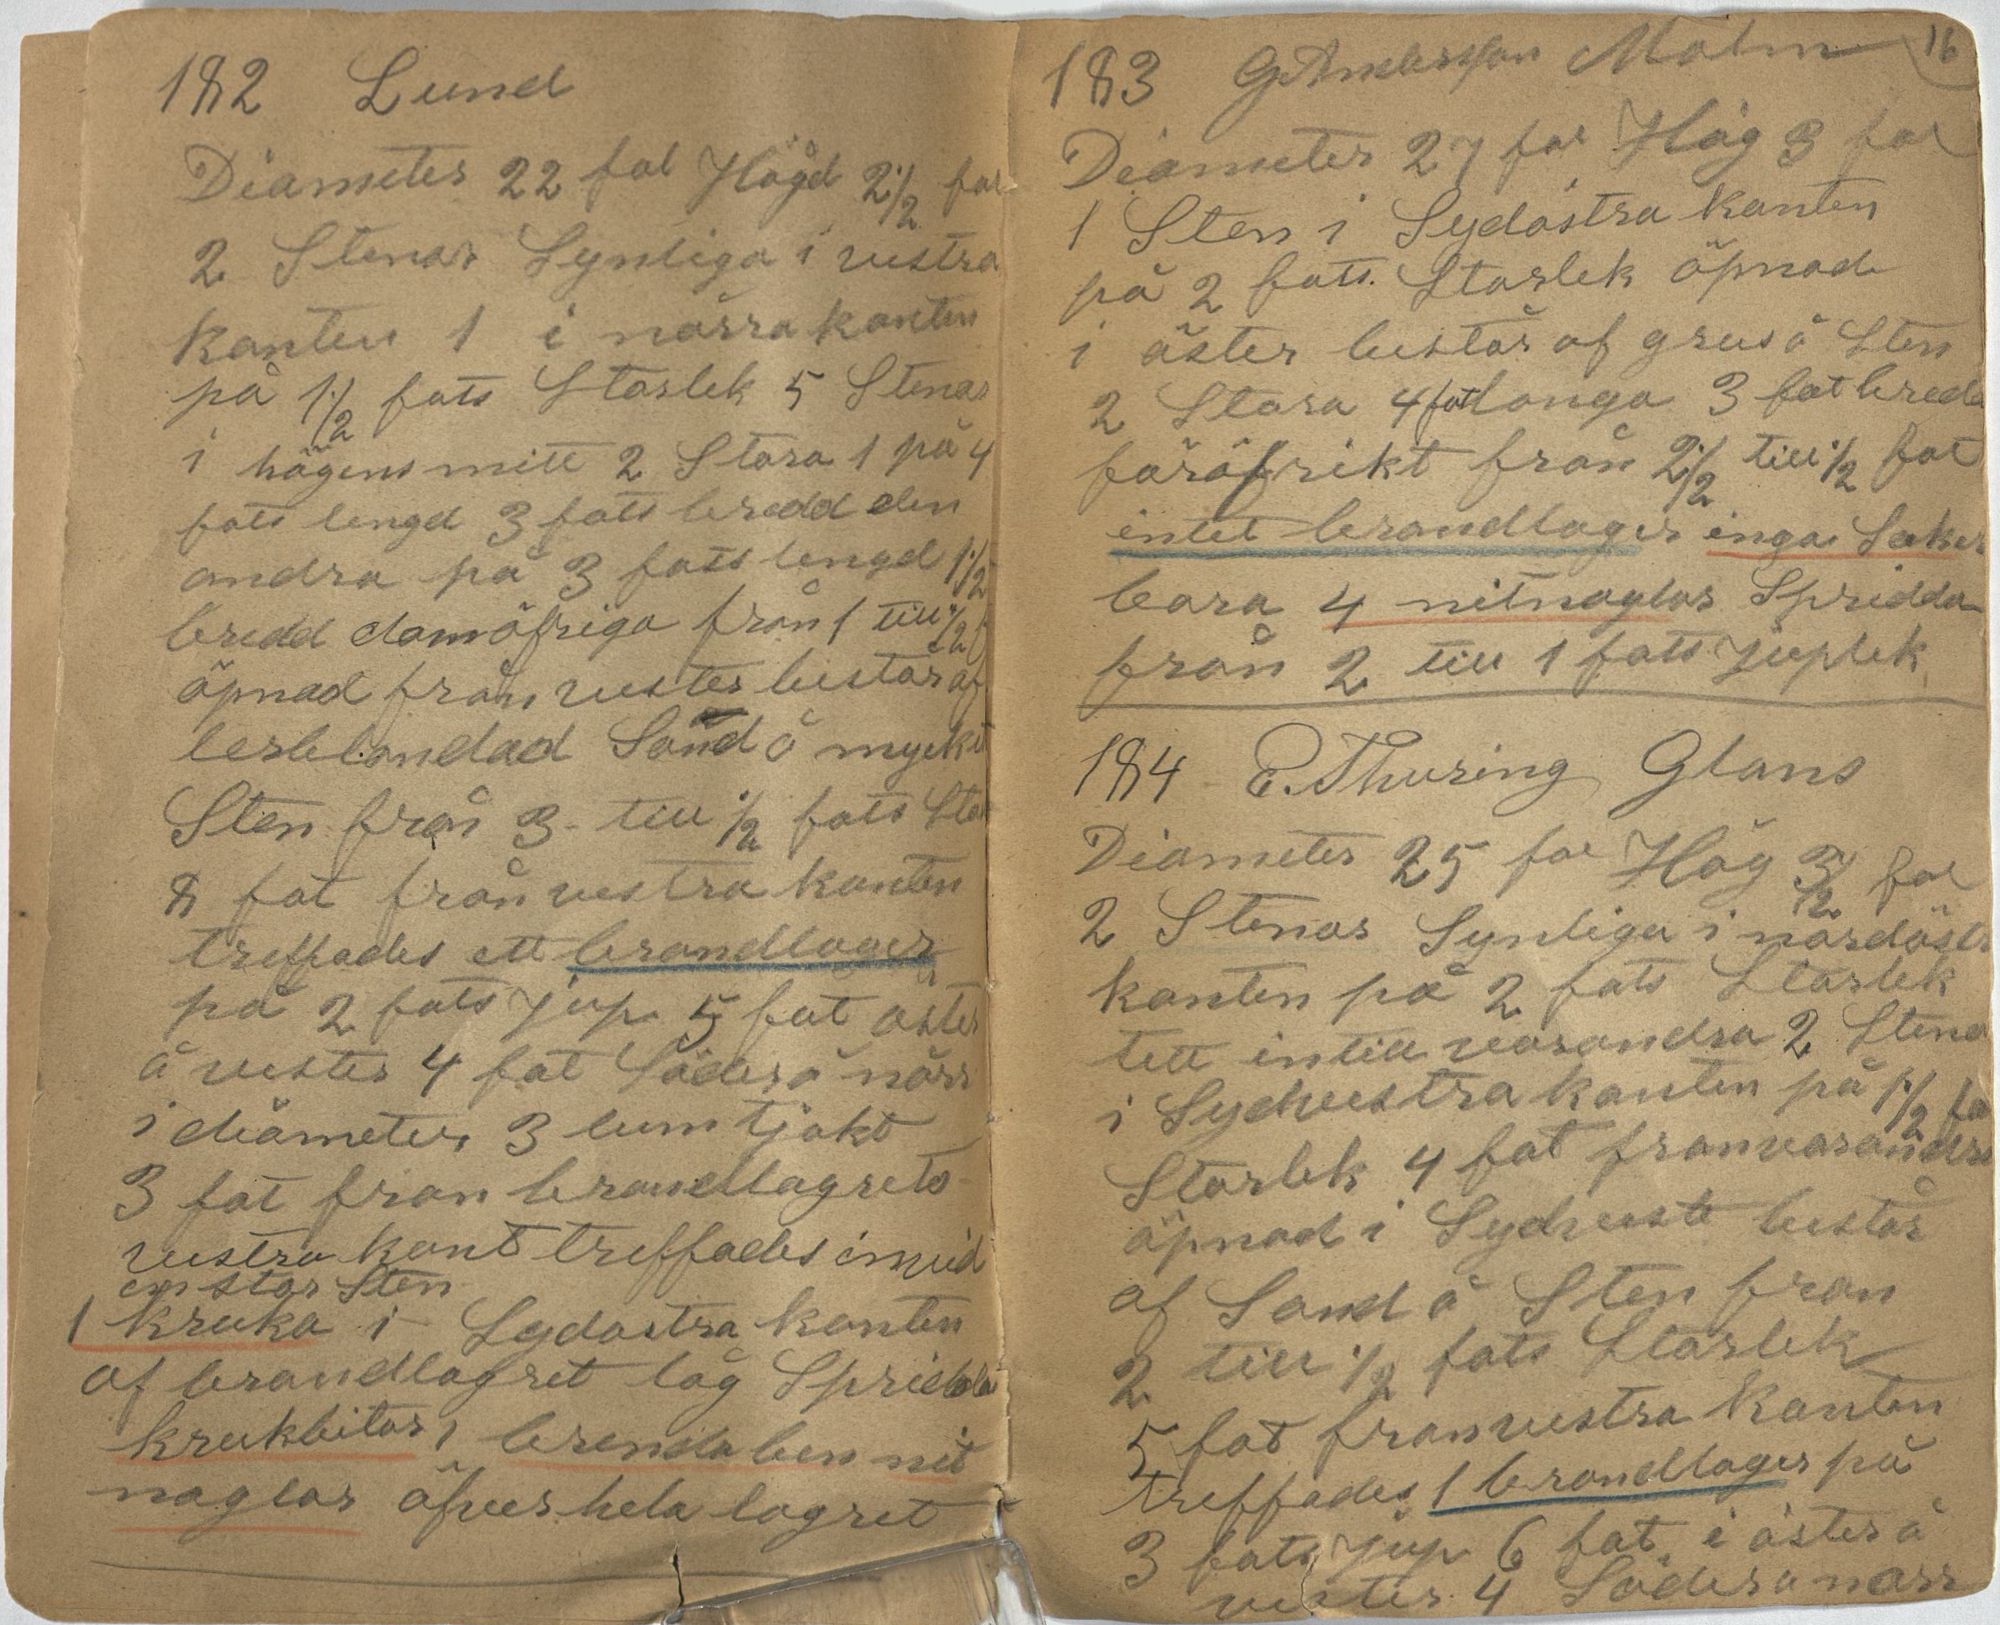 182 Lund
Diameter 22 fot Högd 2 1/2 fot
2 Stenar Synliga i vestra
kanten 1 i norra kanten
på 1 1/2 fots Storlek 5 Stenar
i högens mitt 2 Stora 1 på 4
fots lengd 3 fots bredd den
andra på 3 fots lengd 1 1/2
bredd damöfriga från 1 till 1/2 f
öpnad från vester bestar af
lerblandad Sand å mycket
Sten från 3 till 1/2 fots Stor
8 fot från vestra kanten
treffades ett brandlager
på 2 fots jup 5 fot öster
å vester 4 fot Söder å norr
i diameter 3 tum tjokt
3 fot fron brandlagrets
vestra kant treffades invid
en stor Sten
1 kruka i Sydostra kanten
af brandlagret låg Spridda
krukbitar, brenda ben nit
naglar öfver hela lagret
16
183 G Andersson Malm
Diameter 27 fot Hög 3 fot
1 Sten i Sydöstra kanten
på 2 fots Storlek öpnad
i öster består af grus å Sten
2 Stora 4 fot longa 3 fot breda
föröfrikt från 2 1/2 till 1/2 fot
intet brandlager inga Saker
bara 4 nitnaglar Spridda
från 2 till 1 fots juplek
184 E. Thuring Glans
Diameter 25 fot Hög 3 1/2 fot
2 Stenar Synliga i nordöstr
kanten på 2 fots Storlek
tett intill varandra 2 Stena
i Sydvestra kanten på 1 1/2 fo
Storlek 4 fot fronvarandra
öpnad i Sydvest består
af Sand å Sten fron
2 till 1/2 fots Storlek
5 fot fronvestra Kanten
treffades 1 brandlager på
3 fots jup 6 fot i öster å
vester 4 Söder å norr